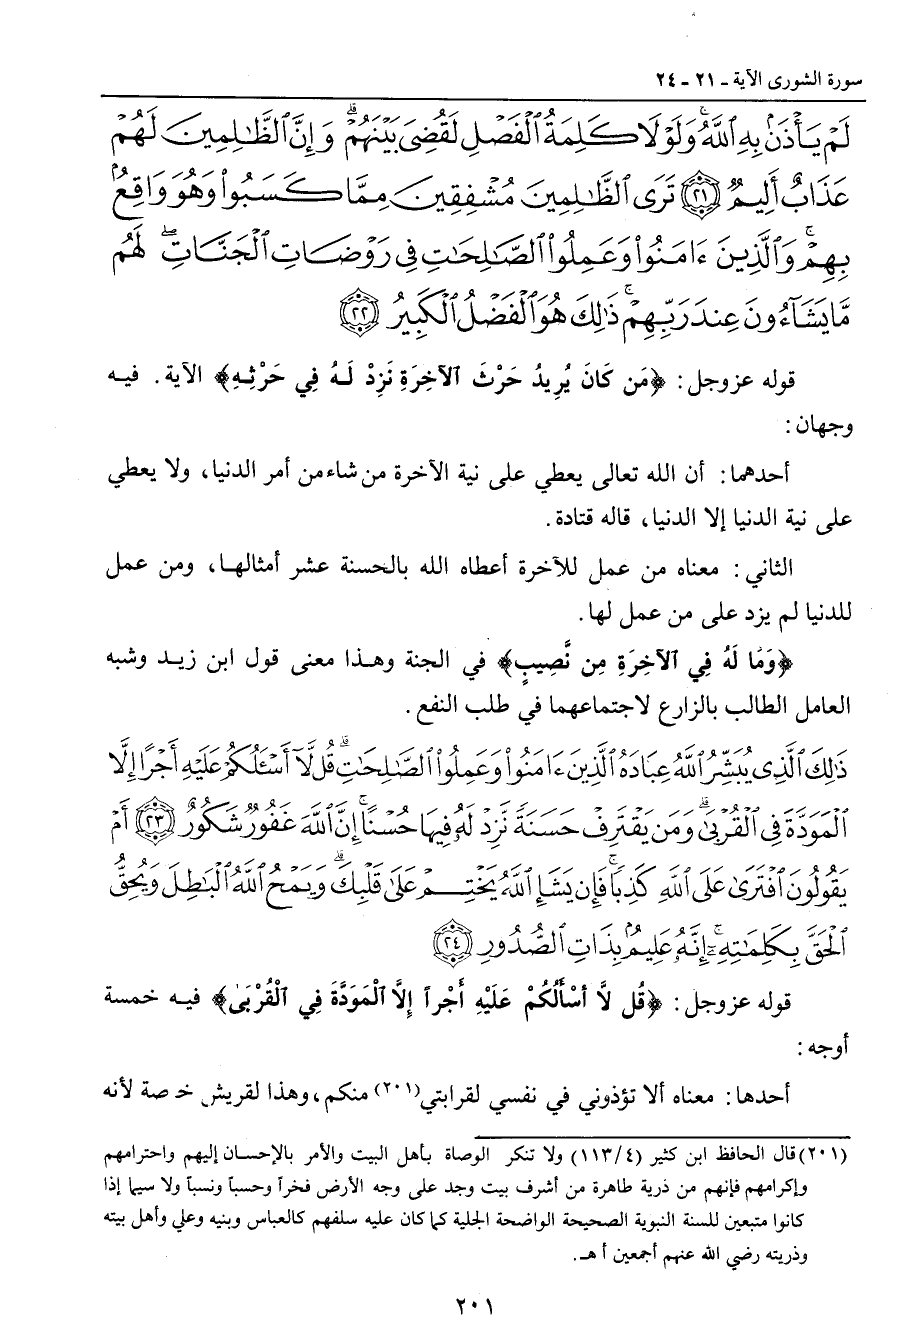 سورة الشورى الآية ـ ٢١ - ٢٤
لَمْ يَأْذَنۢ بِهِ ٱللَّهُ ۚ وَلَوْلَا كَلِمَةُ ٱلْفَصْلِ لَقُضِىَ بَيْنَهُمْ ۗ وَإِنَّ ٱلظَّٰلِمِينَ لَهُمْ
عَذَابٌ أَلِيمٌ ﴿٢١﴾ تَرَى ٱلظَّٰلِمِينَ مُشْفِقِينَ مِمَّا كَسَبُوا۟ وَهُوَ وَاقِعٌۢ
بِهِمْ ۗ وَٱلَّذِينَ ءَامَنُوا۟ وَعَمِلُوا۟ ٱلصَّٰلِحَٰتِ فِى رَوْضَاتِ ٱلْجَنَّاتِ ۖ لَهُم
مَّا يَشَآءُونَ عِندَ رَبِّهِمْ ۚ ذَٰلِكَ هُوَ ٱلْفَضْلُ ٱلْكَبِيرُ ﴿٢٢﴾
قوله عز وجل: ﴿مَن كَانَ يُرِيدُ حَرْثَ الآخِرَةِ نَزِدْ لَهُ فِي حَرْثِهِ﴾ الآية. فيه
وجهان:
أحدهما: أن الله تعالى يعطي على نية الآخرة من شاء من أمر الدنيا، ولا يعطي
على نية الدنيا إلا الدنيا، قاله قتادة.
الثاني: معناه من عمل للآخرة أعطاه الله بالحسنة عشر أمثالها، ومن عمل
للدنيا لم يزد على من عمل لها.
﴿وَمَا لَهُ فِي الآخِرَةِ مِن نَّصِيبٍ﴾ في الجنة وهذا معنى قول ابن زيد وشبه
العامل الطالب بالزارع لاجتماعهما في طلب النفع.
ذَٰلِكَ ٱلَّذِى يُبَشِّرُ ٱللَّهُ عِبَادَهُ ٱلَّذِينَ ءَامَنُوا۟ وَعَمِلُوا۟ ٱلصَّٰلِحَٰتِ ۗ قُل لَّآ أَسْـَٔلُكُمْ عَلَيْهِ أَجْرًا إِلَّا
ٱلْمَوَدَّةَ فِى ٱلْقُرْبَىٰ ۗ وَمَن يَقْتَرِفْ حَسَنَةً نَّزِدْ لَهُۥ فِيهَا حُسْنًا ۚ إِنَّ ٱللَّهَ غَفُورٌ شَكُورٌ ﴿٢٣﴾ أَمْ
يَقُولُونَ ٱفْتَرَىٰ عَلَى ٱللَّهِ كَذِبًا ۖ فَإِن يَشَإِ ٱللَّهُ يَخْتِمْ عَلَىٰ قَلْبِكَ ۗ وَيَمْحُ ٱللَّهُ ٱلْبَٰطِلَ وَيُحِقُّ
ٱلْحَقَّ بِكَلِمَٰتِهِۦٓ ۚ إِنَّهُۥ عَلِيمٌۢ بِذَاتِ ٱلصُّدُورِ ﴿٢٤﴾
قوله عز وجل: ﴿قُل لاَّ أَسْأَلُكُمْ عَلَيْهِ أَجْراً إِلاَّ الْمَوَدَّةَ فِي الْقُرْبَىٰ﴾ فيه خمسة
أوجه:
أحدها: معناه ألا تؤذوني في نفسي لقرابتي(٢٠١) منكم، وهذا لقريش خاصة لأنه
(٢٠١) قال الحافظ ابن كثير (٤/١١٣) ولا تنكر الوصاة بأهل البيت والأمر بالإحسان إليهم واحترامهم
وإكرامهم فإنهم من ذرية طاهرة من أشرف بيت وجد على وجه الأرض فخراً وحسباً ونسباً ولا سيما إذا
كانوا متبعين للسنة النبوية الصحيحة الواضحة الجلية كما كان عليه سلفهم كالعباس وبنيه وعلي وأهل بيته
وذريته رضي الله عنهم أجمعين أ هـ.
٢٠١